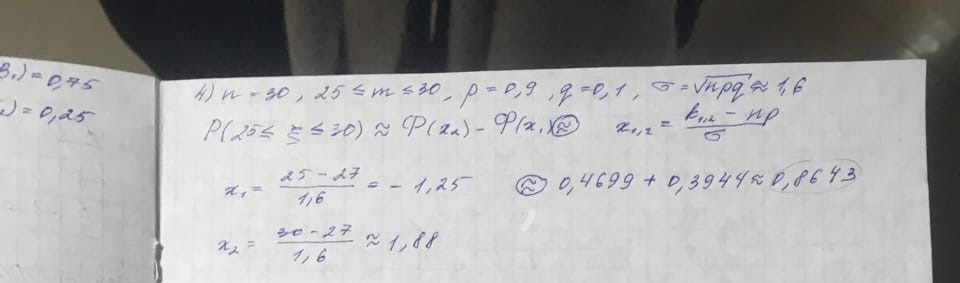 B₁) = 0,75
) = 0,25
4) n = 30, 25 ≤ m ≤ 30, p = 0,9, q = 0,1, σ = √npq ≈ 1,6
P(25 ≤ ξ ≤ 30) ≈ Φ(x₂) - Φ(x₁) ≈ x₁,₂ = (k₁,₂ - np)/σ
x₁ = (25 - 27)/1,6 = - 1,25 ≈ 0,4699 + 0,3944 ≈ 0,8643
x₂ = (30 - 27)/1,6 ≈ 1,88